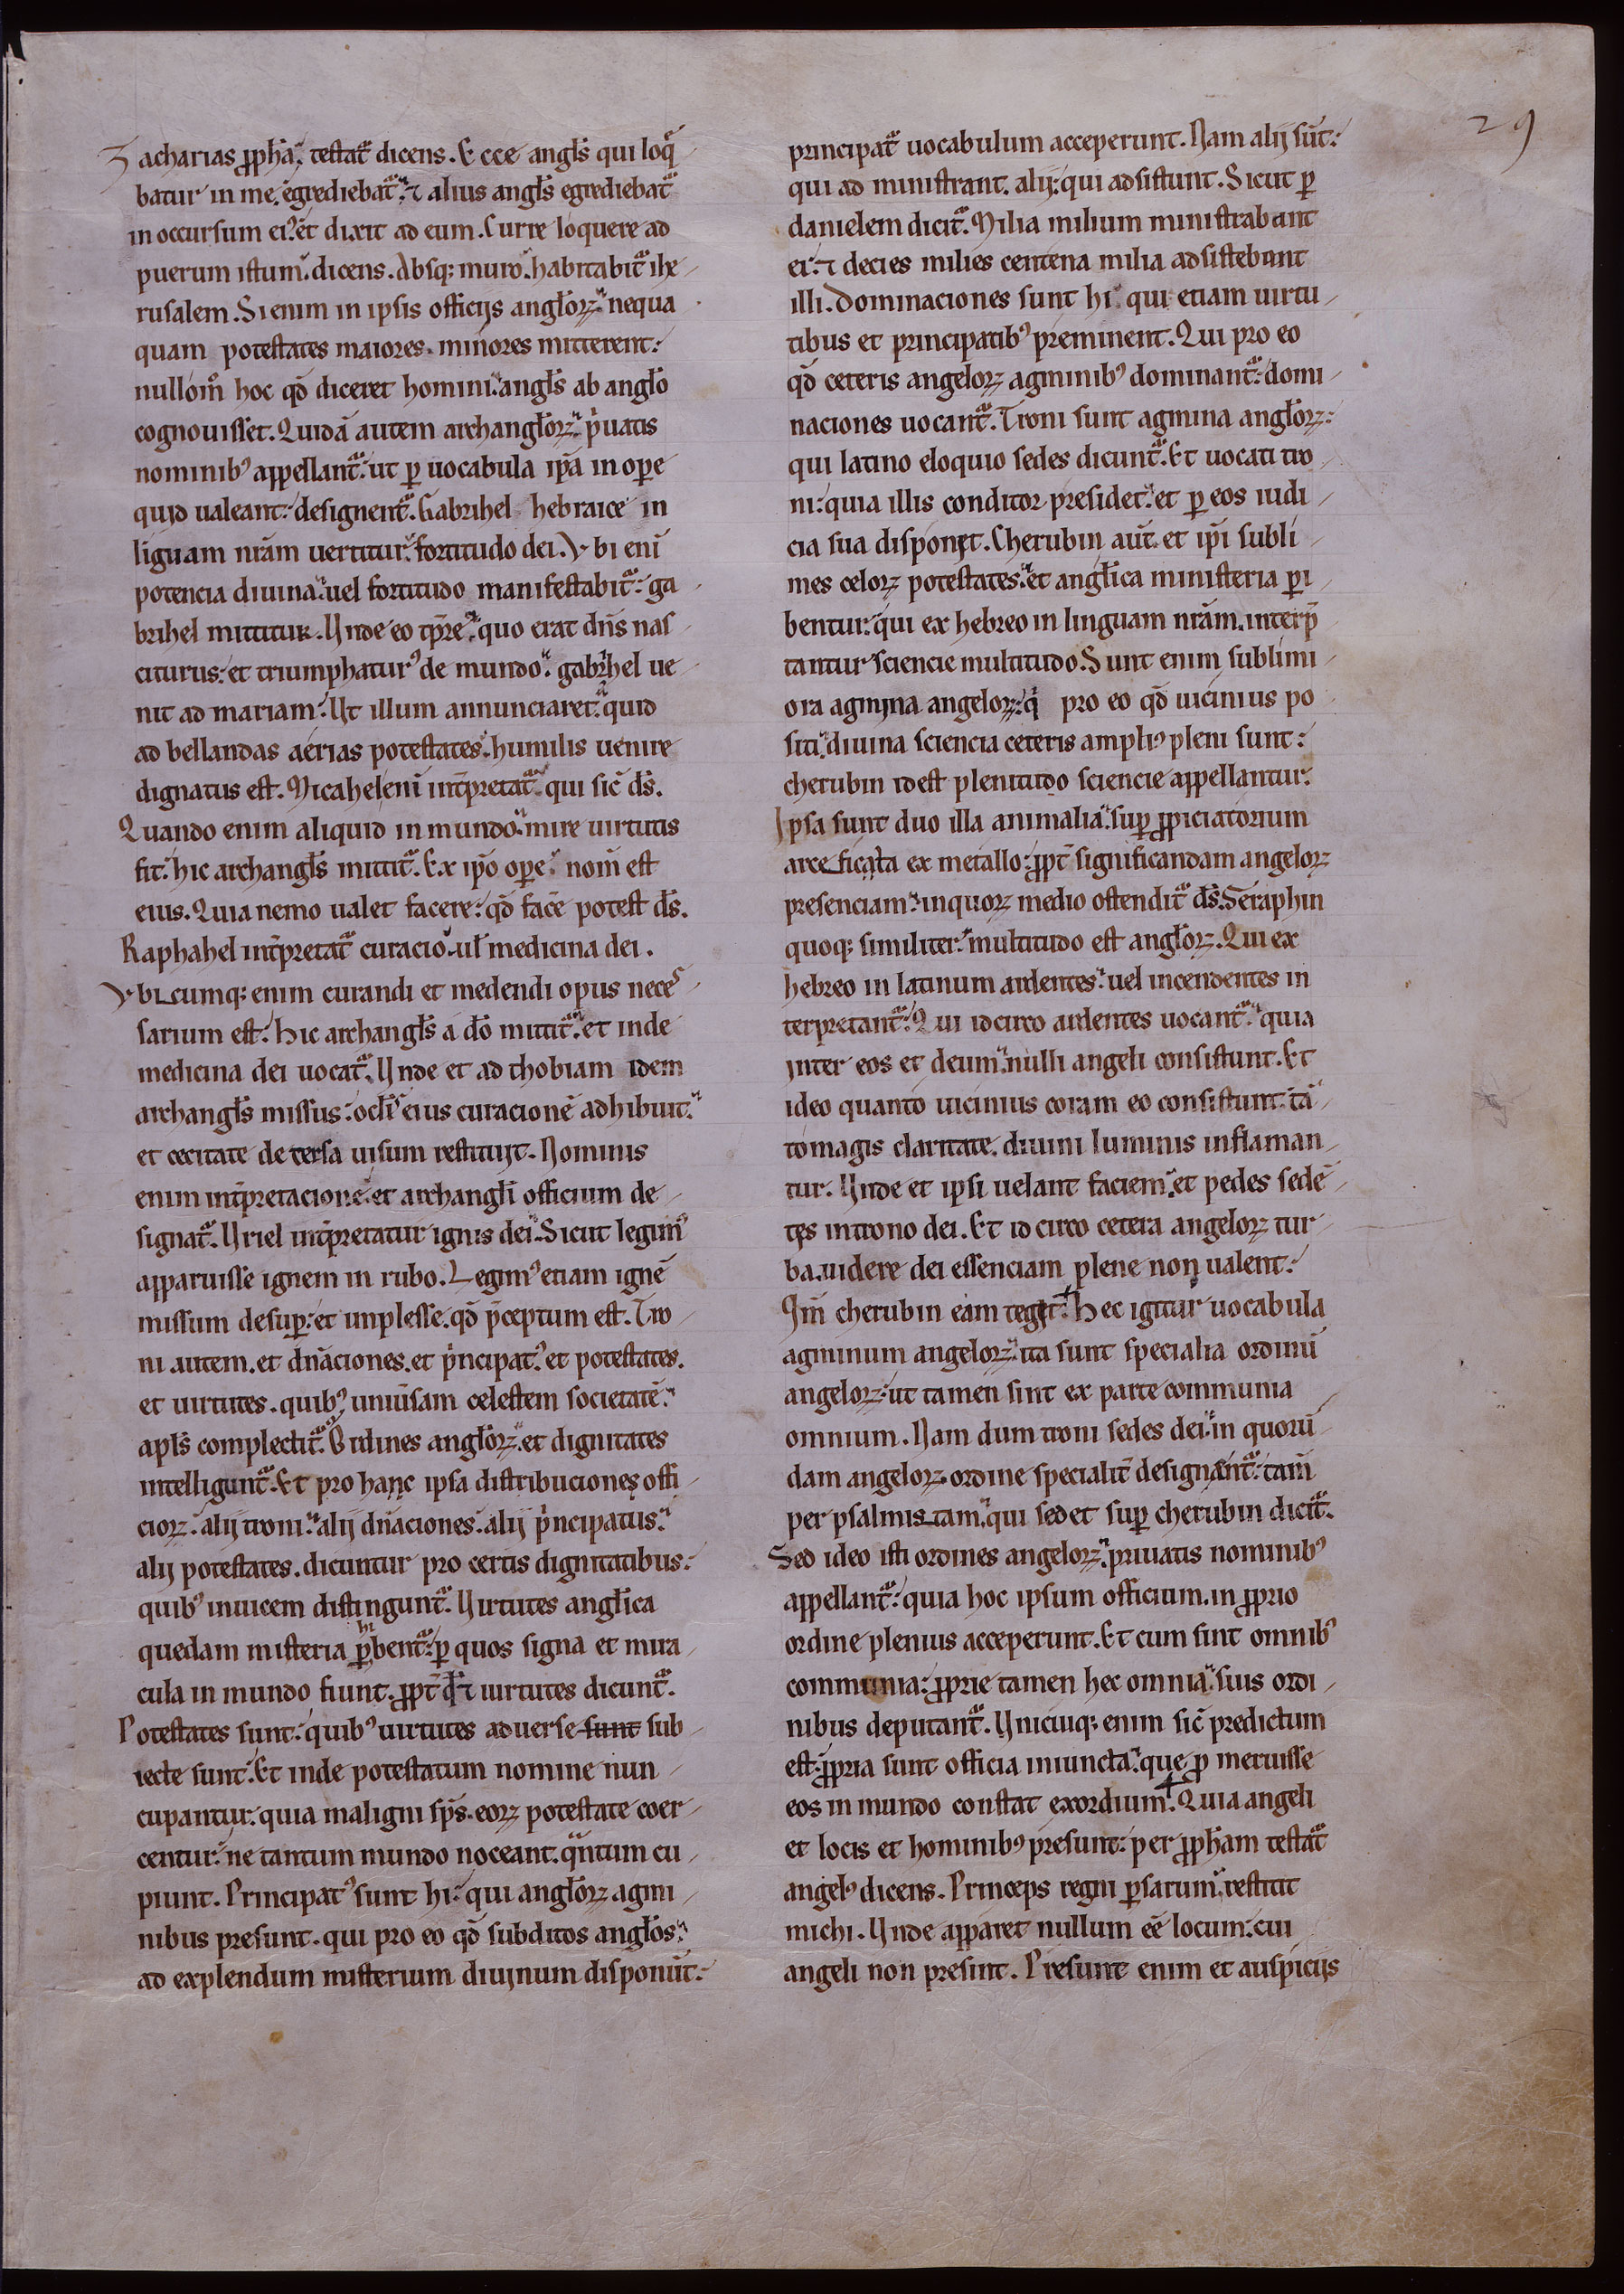 29
Zacharias ꝓph̄a, testat᷑ dicens. Ecce angl̄s qui loq̄
batur in me, egrediebat᷑. ⁊ alius angl̄s egrediebat᷑
in occursum ei᷒. et dixit ad eum. Curre loquere ad
puerum istum. dicens. Absq; muro. habitabit᷑ ihe
rusalem. Si enim in ipsis officijs angl̄oꝝ. nequa
quam potestates maiores. minores mitterent:
nullom̄ hoc qd̄ diceret homini. angl̄s ab angl̄o
cognouisset. Quidā autem archangl̄oꝝ. pͥuatis
nominibꝰ appellant᷑. ut ꝑ uocabula ip̄a in oꝑe
quid ualeant. designent᷑. Gabrihel hebraice in
liguam nr̄am uertitur. fortitudo dei. Vbi eni̅
potencia diuina. uel fortitudo manifestabit᷑. ga
brihel mittitur. Vnde eo tp̄re. quo erat dn̄s nas
citurus. et triumphaturꝰ de mundo. gabrihel ue
nit ad mariam. Vt illum annunciaret. quid
ad bellandas aerias potestates. humilis uenire
dignatus est. Micahel eni̅ int̄pretat᷑. qui sic̄ ds̄.
Quando enim aliquid in mundo. mire uirtutis
fit. hic archangl̄s mittit᷑. Ex ip̄o oꝑe. nom̄ est
eius. Quia nemo ualet facere. qd̄ fac̄e potest ds̄.
Raphahel int̄pretat᷑ curacio. ul̄ medicina dei.
Vbicumq; enim curandi et medendi opus neces
sarium est. hic archangl̄s a dō mittit᷑. et inde
medicina dei uocat᷑. Vnde et ad thobiam idem
archangl̄s missus. ocl̄i eius curacionē adhibuit.
et cecitate detersa uisum restituit. Nominis
enim int̄pretacione. et archangl̄i officium de
signat᷑. Vriel int̄pretatur ignis dei. Sicut legimꝰ
apparuisse ignem in rubo. Legimꝰ etiam ignē
missum desuꝑ. et inplesse. qd̄ p̄ceptum est. Tro
ni autem. et dn̄aciones. et pͥncipatꝰ. et potestates.
et uirtutes. quibꝰ uniu̅sam celestem societatē.
apl̄s complectit᷑. Ordines angl̄oꝝ. et dignitates
intelligunt᷑. Et pro hanc ipsa distribuciones offi
cioꝝ. alij troni. alij dn̄aciones. alij pͥncipatus.
alij potestates. dicuntur pro certis dignitatibus.
quibꝰ inuicem distingunt᷑. Virtutes angl̄ica
quedam misteria ꝑhibent᷑. ꝑ quos signa et mira
cula in mundo fiunt. ꝓpt̄ qd̄ ⁊ uirtutes dicunt᷑.
Potestates sunt. quibꝰ uirtutes aduerse sunt sub
iecte sunt. Et inde potestatum nomine nun
cupantur. quia maligni sp̄s. eoꝝ potestate coer
centur. ne tantum mundo noceant. qᷓntum cu
piunt. Principatꝰ sunt hi. qui angl̄oꝝ agmi
nibus presunt. qui pro eo qd̄ subditos angl̄os.
ad explendum misterium diuinum disponūt.
principat᷑ uocabulum acceperunt. Nam alij sūt.
qui ad ministrant. alij. qui adsistunt. Sicut ꝑ
danielem dicit᷑. Milia milium ministrabant
ei. ⁊ decies milies centena milia adsistebant
illi. Dominaciones sunt hi. qui etiam uirtu
tibus et principatibꝰ preminent. Qui pro eo
qd̄ ceteris angeloꝝ agminibꝰ dominant᷑. domi
naciones uocant᷑. Troni sunt agmina angl̄oꝝ.
qui latino eloquio sedes dicunt᷑. Et uocati tro
ni. quia illis conditor presidet. et ꝑ eos iudi
cia sua disponit. Cherubin aut̄. et ip̄i subli
mes celoꝝ potestates. et angl̄ica ministeria ꝑi
bentur. qui ex hebreo in linguam nr̄am. interp̄
tantur sciencie multitudo. Sunt enim sublimi
ora agmina angeloꝝ. qͥ pro eo qd̄ uicinius po
siti. diuina sciencia ceteris ampliꝰ pleni sunt.
cherubin idest plenitudo sciencie appellantur.
Ipsa sunt duo illa animalia. suꝑ ꝓpiciatorium
arce ficata ex metallo. ꝓpt̄ significandam angeloꝝ
presenciam. inquoꝝ medio ostendit᷑ ds̄. Seraphin
quoq; similiter. multitudo est angl̄oꝝ. Qui ex
hebreo in latinum ardentes. uel incendentes in
terpretant᷑. Qui idcirco ardentes uocant᷑. quia
inter eos et deum. nulli angeli consistunt. Et
ideo quanto uicinius coram eo consistunt. tā
tomagis claritate. diuini luminis inflaman
tur. Vnde et ipsi uelant faciem. et pedes sedē
tes introno dei. Et idcirco cetera angeloꝝ tur
ba. uidere dei essenciam plene non ualent.
Qm̄ cherubin eam tegit. Hec igitur uocabula
agminum angeloꝝ. ita sunt specialia ordinū
angeloꝝ. ut tamen sint ex parte communia
omnium. Nam dum troni sedes dei. in quorū
dam angeloꝝ ordine specialit̄ designant᷑. tam̄
per psalmistam. qui sedet suꝑ cherubin dicit᷑.
Sed ideo isti ordines angeloꝝ. priuatis nominibꝰ
appellant᷑. quia hoc ipsum officium. in ꝓprio
ordine plenius acceperunt. Et cum sint omnibꝰ
communia. ꝓprie tamen hec omnia. suis ordi
nibus deputant᷑. Vnicuiq; enim sic̄ predictum
est. ꝓpria sunt officia iniuncta. que ꝓ meruisse
eos in mundo constat exordium. Quia angeli
et locis et hominibꝰ presunt. per ꝓph̄am testat᷑
angelꝰ dicens. Princeps regni ꝑsarum. restitit
michi. Vnde apparet nullum eē locum. cui
angeli non presint. Presunt enim et auspicijs